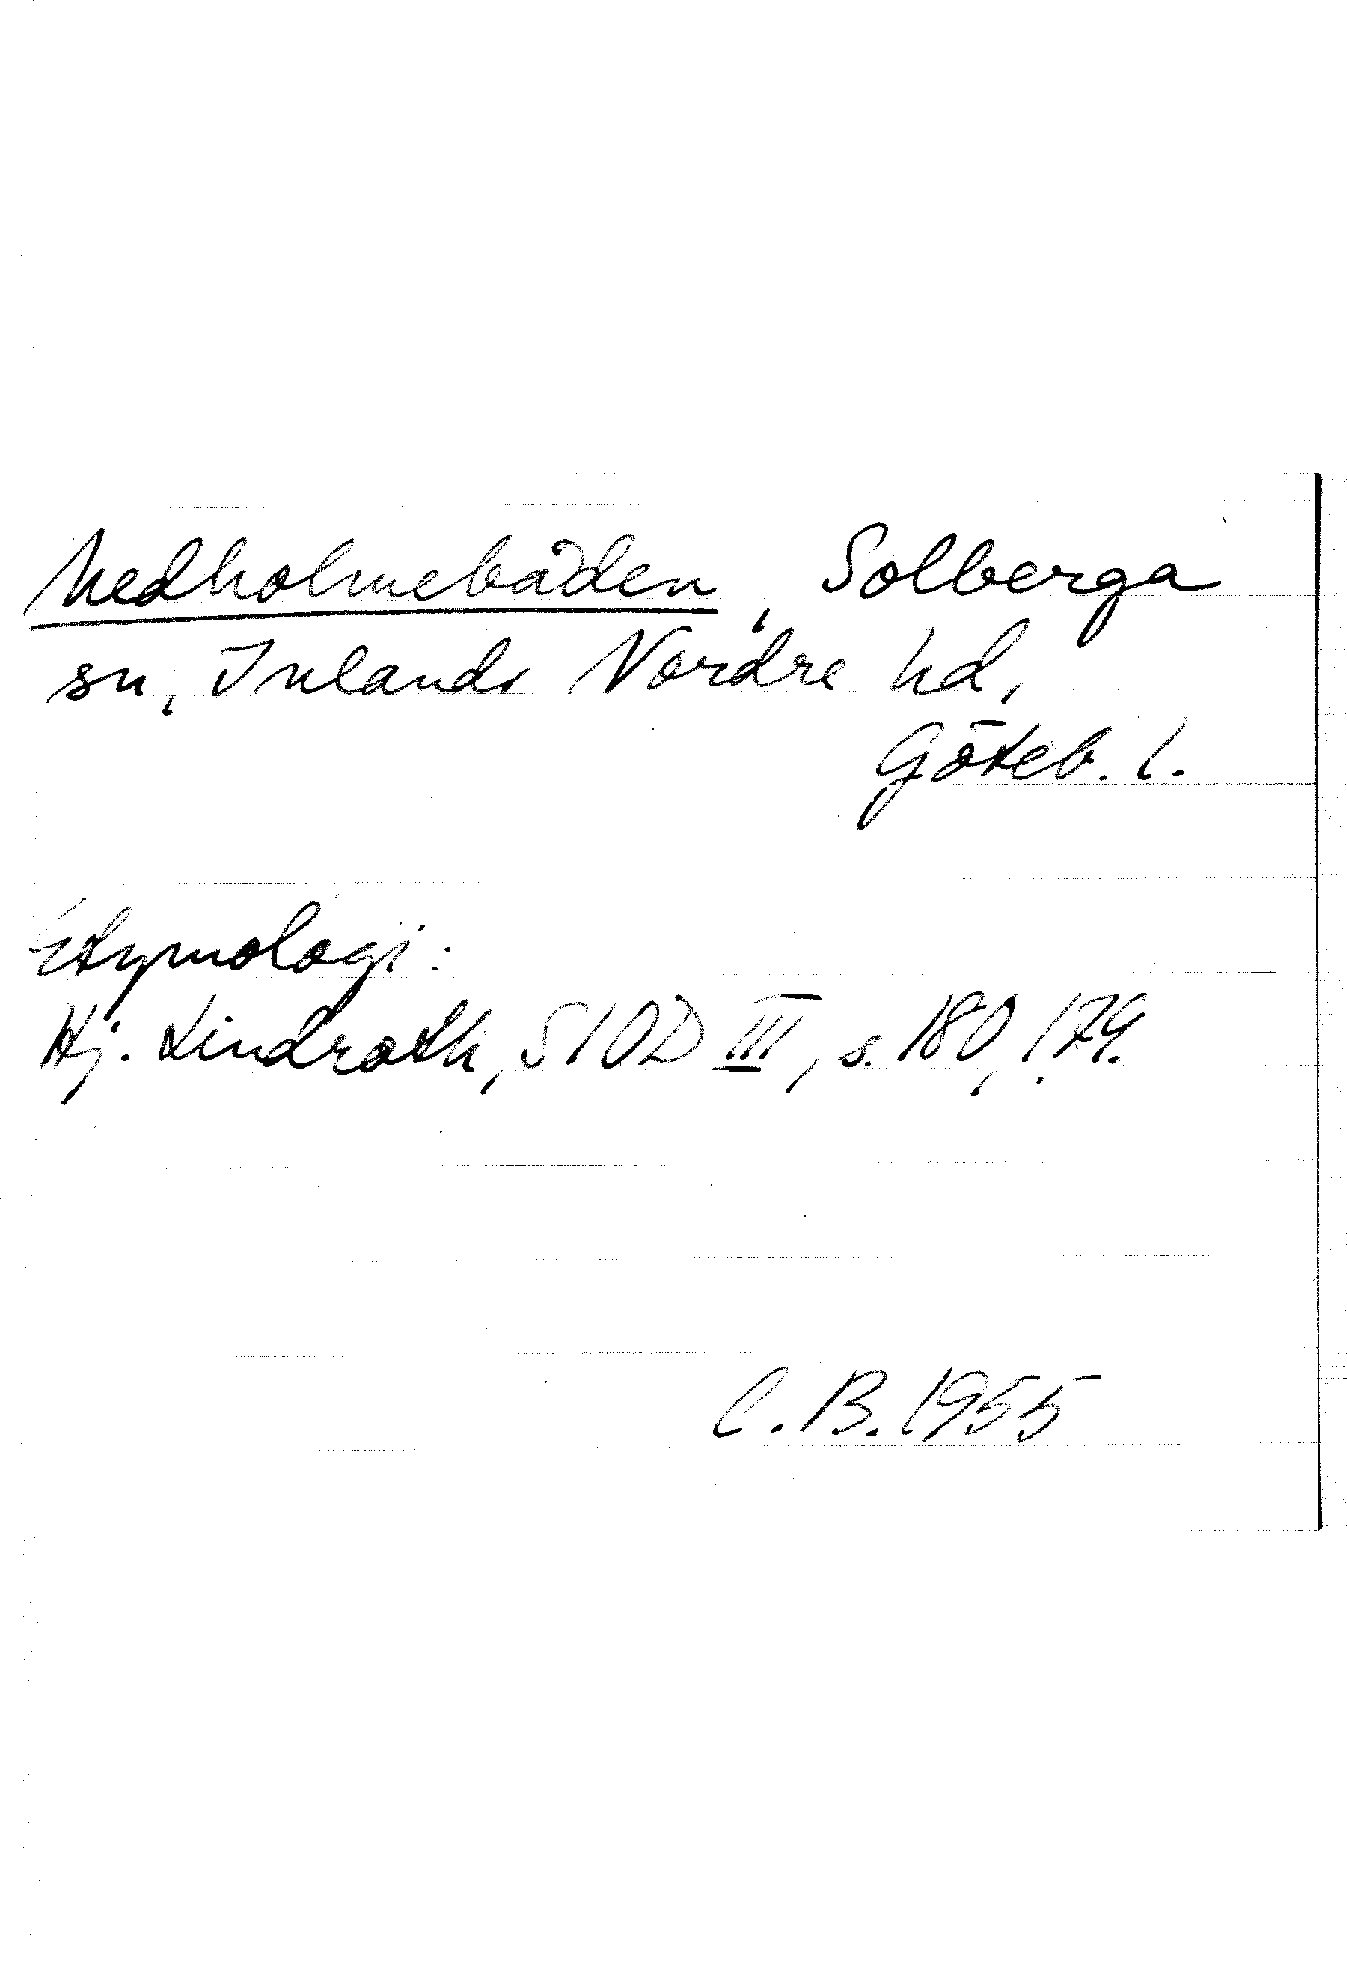 Medholmebåden, Solberga
sn, Inlands Nordre hd,
Göteb. l.
Etymologi:
Hj. Lindroth, SIOD III, s. 180, 179.
C. B. 1955